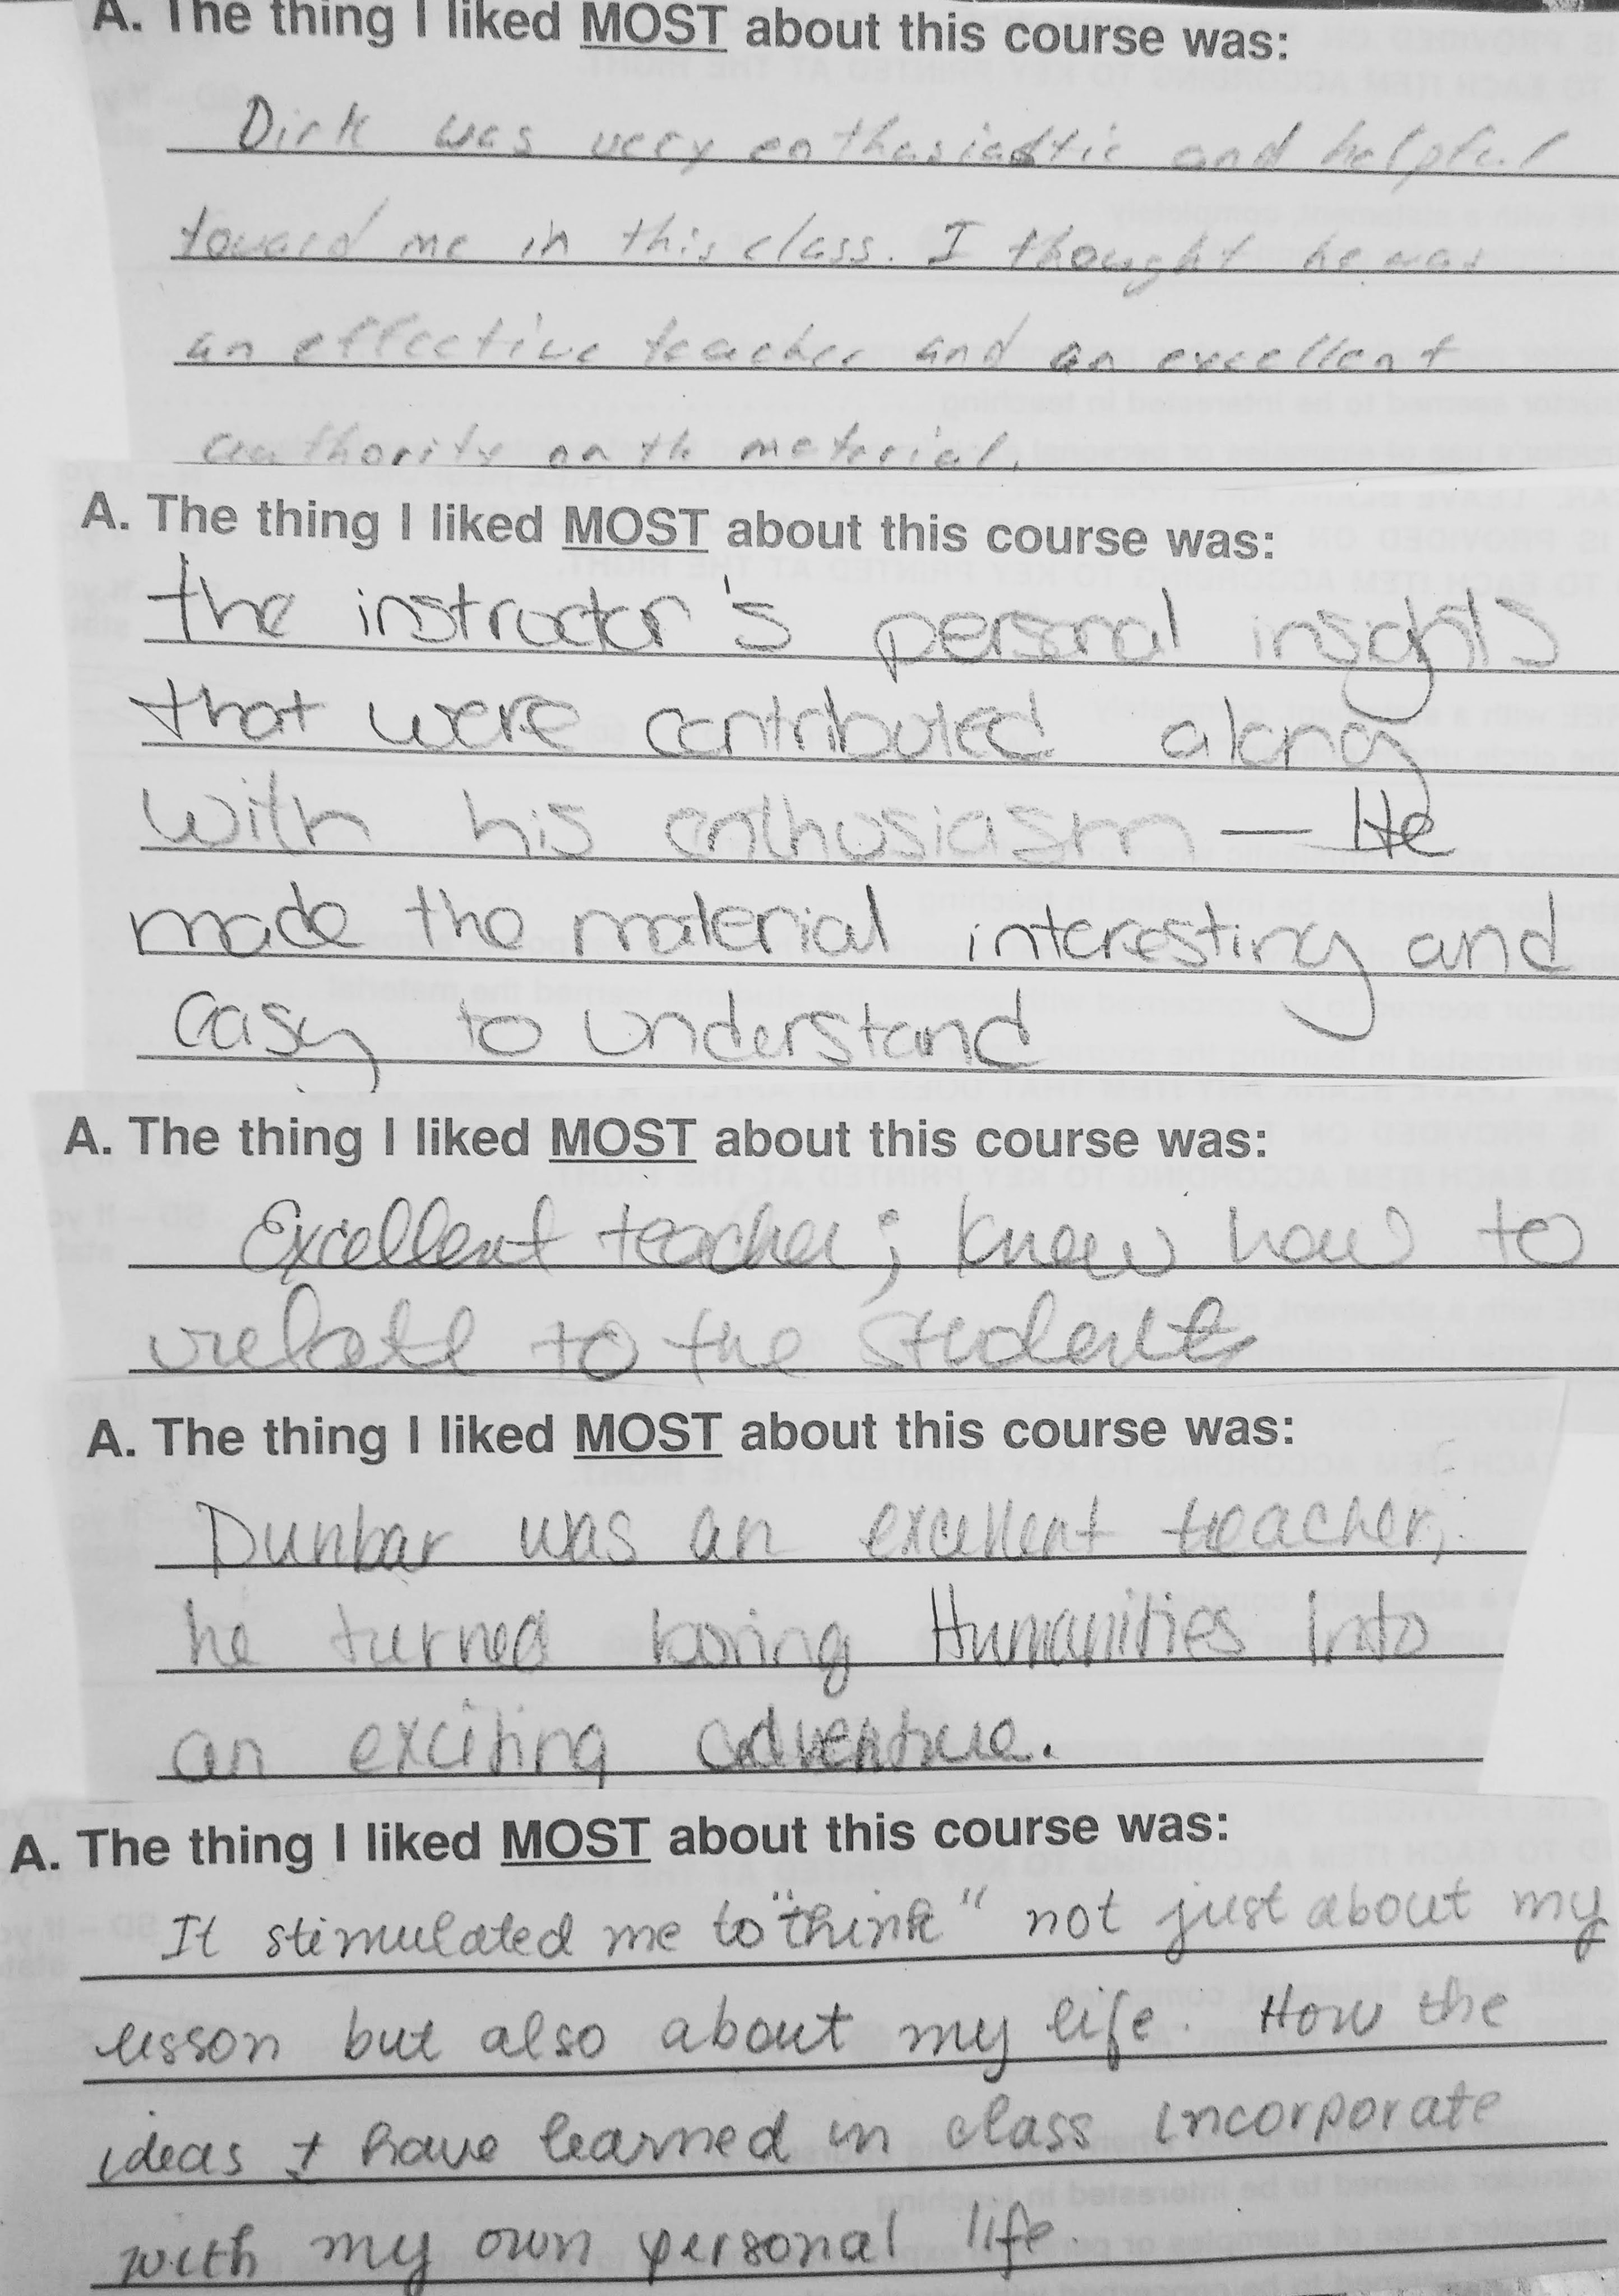 A. The thing I liked MOST about this course was:
Dirk was very enthasiastic and helpful
toward me in this class. I thought he was
an effective teacher and an excellent
authority on th material.
A. The thing I liked MOST about this course was:
the instructor's personal insights
that were contributed along
with his enthusiasm — He
made the material interesting and
easy to understand
A. The thing I liked MOST about this course was:
Excellent teacher; knew how to
relate to the students
A. The thing I liked MOST about this course was:
Dunbar was an excellent teacher,
he turned boring Humanities into
an exciting adventure.
A. The thing I liked MOST about this course was:
It stimulated me to "think" not just about my
lesson but also about my life. How the
ideas I have learned in class incorporate
with my own personal life.